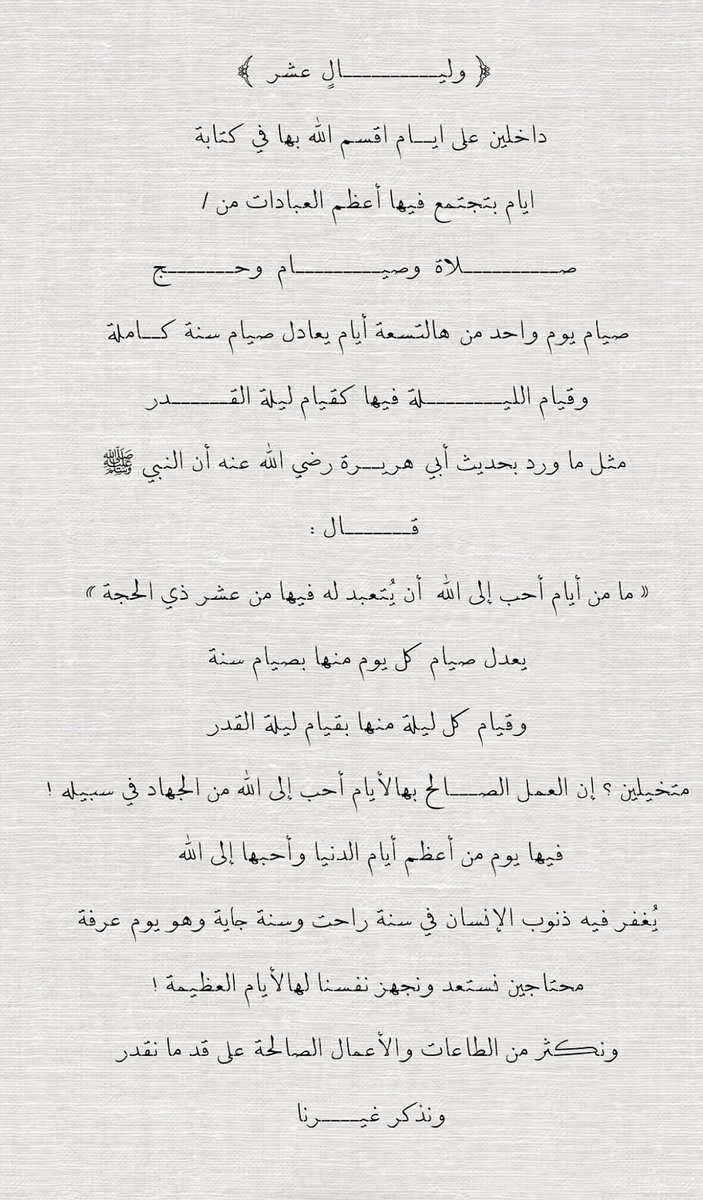 ﴿ وليـــــــــالٍ عشر ﴾
داخلين على ايـــام اقسم الله بها في كتابة
ايام بتجتمع فيها أعظم العبادات من /
صـــــــــلاة وصيـــــــــام وحـــــــــج
صيام يوم واحد من هالتسعة أيام يعادل صيام سنة كـــاملة
وقيام الليـــــــــلة فيها كقيام ليلة القـــــــدر
مثل ما ورد بحديث أبي هريـــرة رضي الله عنه أن النبي ﷺ
قـــــــــال :
« ما من أيام أحب إلى الله أن يُتعبد له فيها من عشر ذي الحجة »
يعدل صيام كل يوم منها بصيام سنة
وقيام كل ليلة منها بقيام ليلة القدر
متخيلين ؟ إن العمل الصـــالح بهالأيام أحب إلى الله من الجهاد في سبيله !
فيها يوم من أعظم أيام الدنيا وأحبها إلى الله
يُغفر فيه ذنوب الإنسان في سنة راحت وسنة جاية وهو يوم عرفة
محتاجين نستعد ونجهز نفسنا لهالأيام العظيمة !
ونكثر من الطاعات والأعمال الصالحة على قد ما نقدر
ونذكر غيـــــرنا